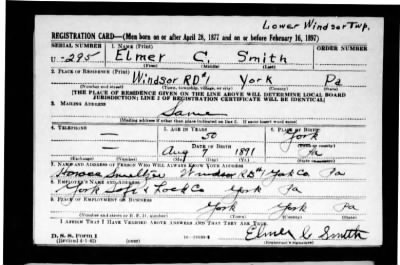 Lower Windsor Twp.
REGISTRATION CARD—(Men born on or after April 28, 1877 and on or before February 16, 1897)
SERIAL NUMBER 1. NAME (Print) ORDER NUMBER
U-295 Elmer C. Smith
(First) (Middle) (Last)
2. PLACE OF RESIDENCE (Print)
Windsor RD#1 York Pa
(Number and street) (Town, township, village, or city) (County) (State)
[THE PLACE OF RESIDENCE GIVEN ON THE LINE ABOVE WILL DETERMINE LOCAL BOARD
JURISDICTION; LINE 2 OF REGISTRATION CERTIFICATE WILL BE IDENTICAL]
3. MAILING ADDRESS
Same
[Mailing address if other than place indicated on line 2. If same insert word same]
4. TELEPHONE 5. AGE IN YEARS 6. PLACE OF BIRTH
— 50 York
DATE OF BIRTH (Town or county)
— Aug 7 1891 Pa
(Exchange) (Number) (Mo.) (Day) (Yr.) (State or country)
7. NAME AND ADDRESS OF PERSON WHO WILL ALWAYS KNOW YOUR ADDRESS
Horace Smeltzer Windsor RD#1 York Co Pa
8. EMPLOYER'S NAME AND ADDRESS
York Safe & Lock Co York Pa
9. PLACE OF EMPLOYMENT OR BUSINESS
York York Pa
(Number and street or R. F. D. number) (Town) (County) (State)
I AFFIRM THAT I HAVE VERIFIED ABOVE ANSWERS AND THAT THEY ARE TRUE.
D. S. S. FORM 1
(Revised 4-1-42) (over) Elmer C Smith
(Registrant's signature)